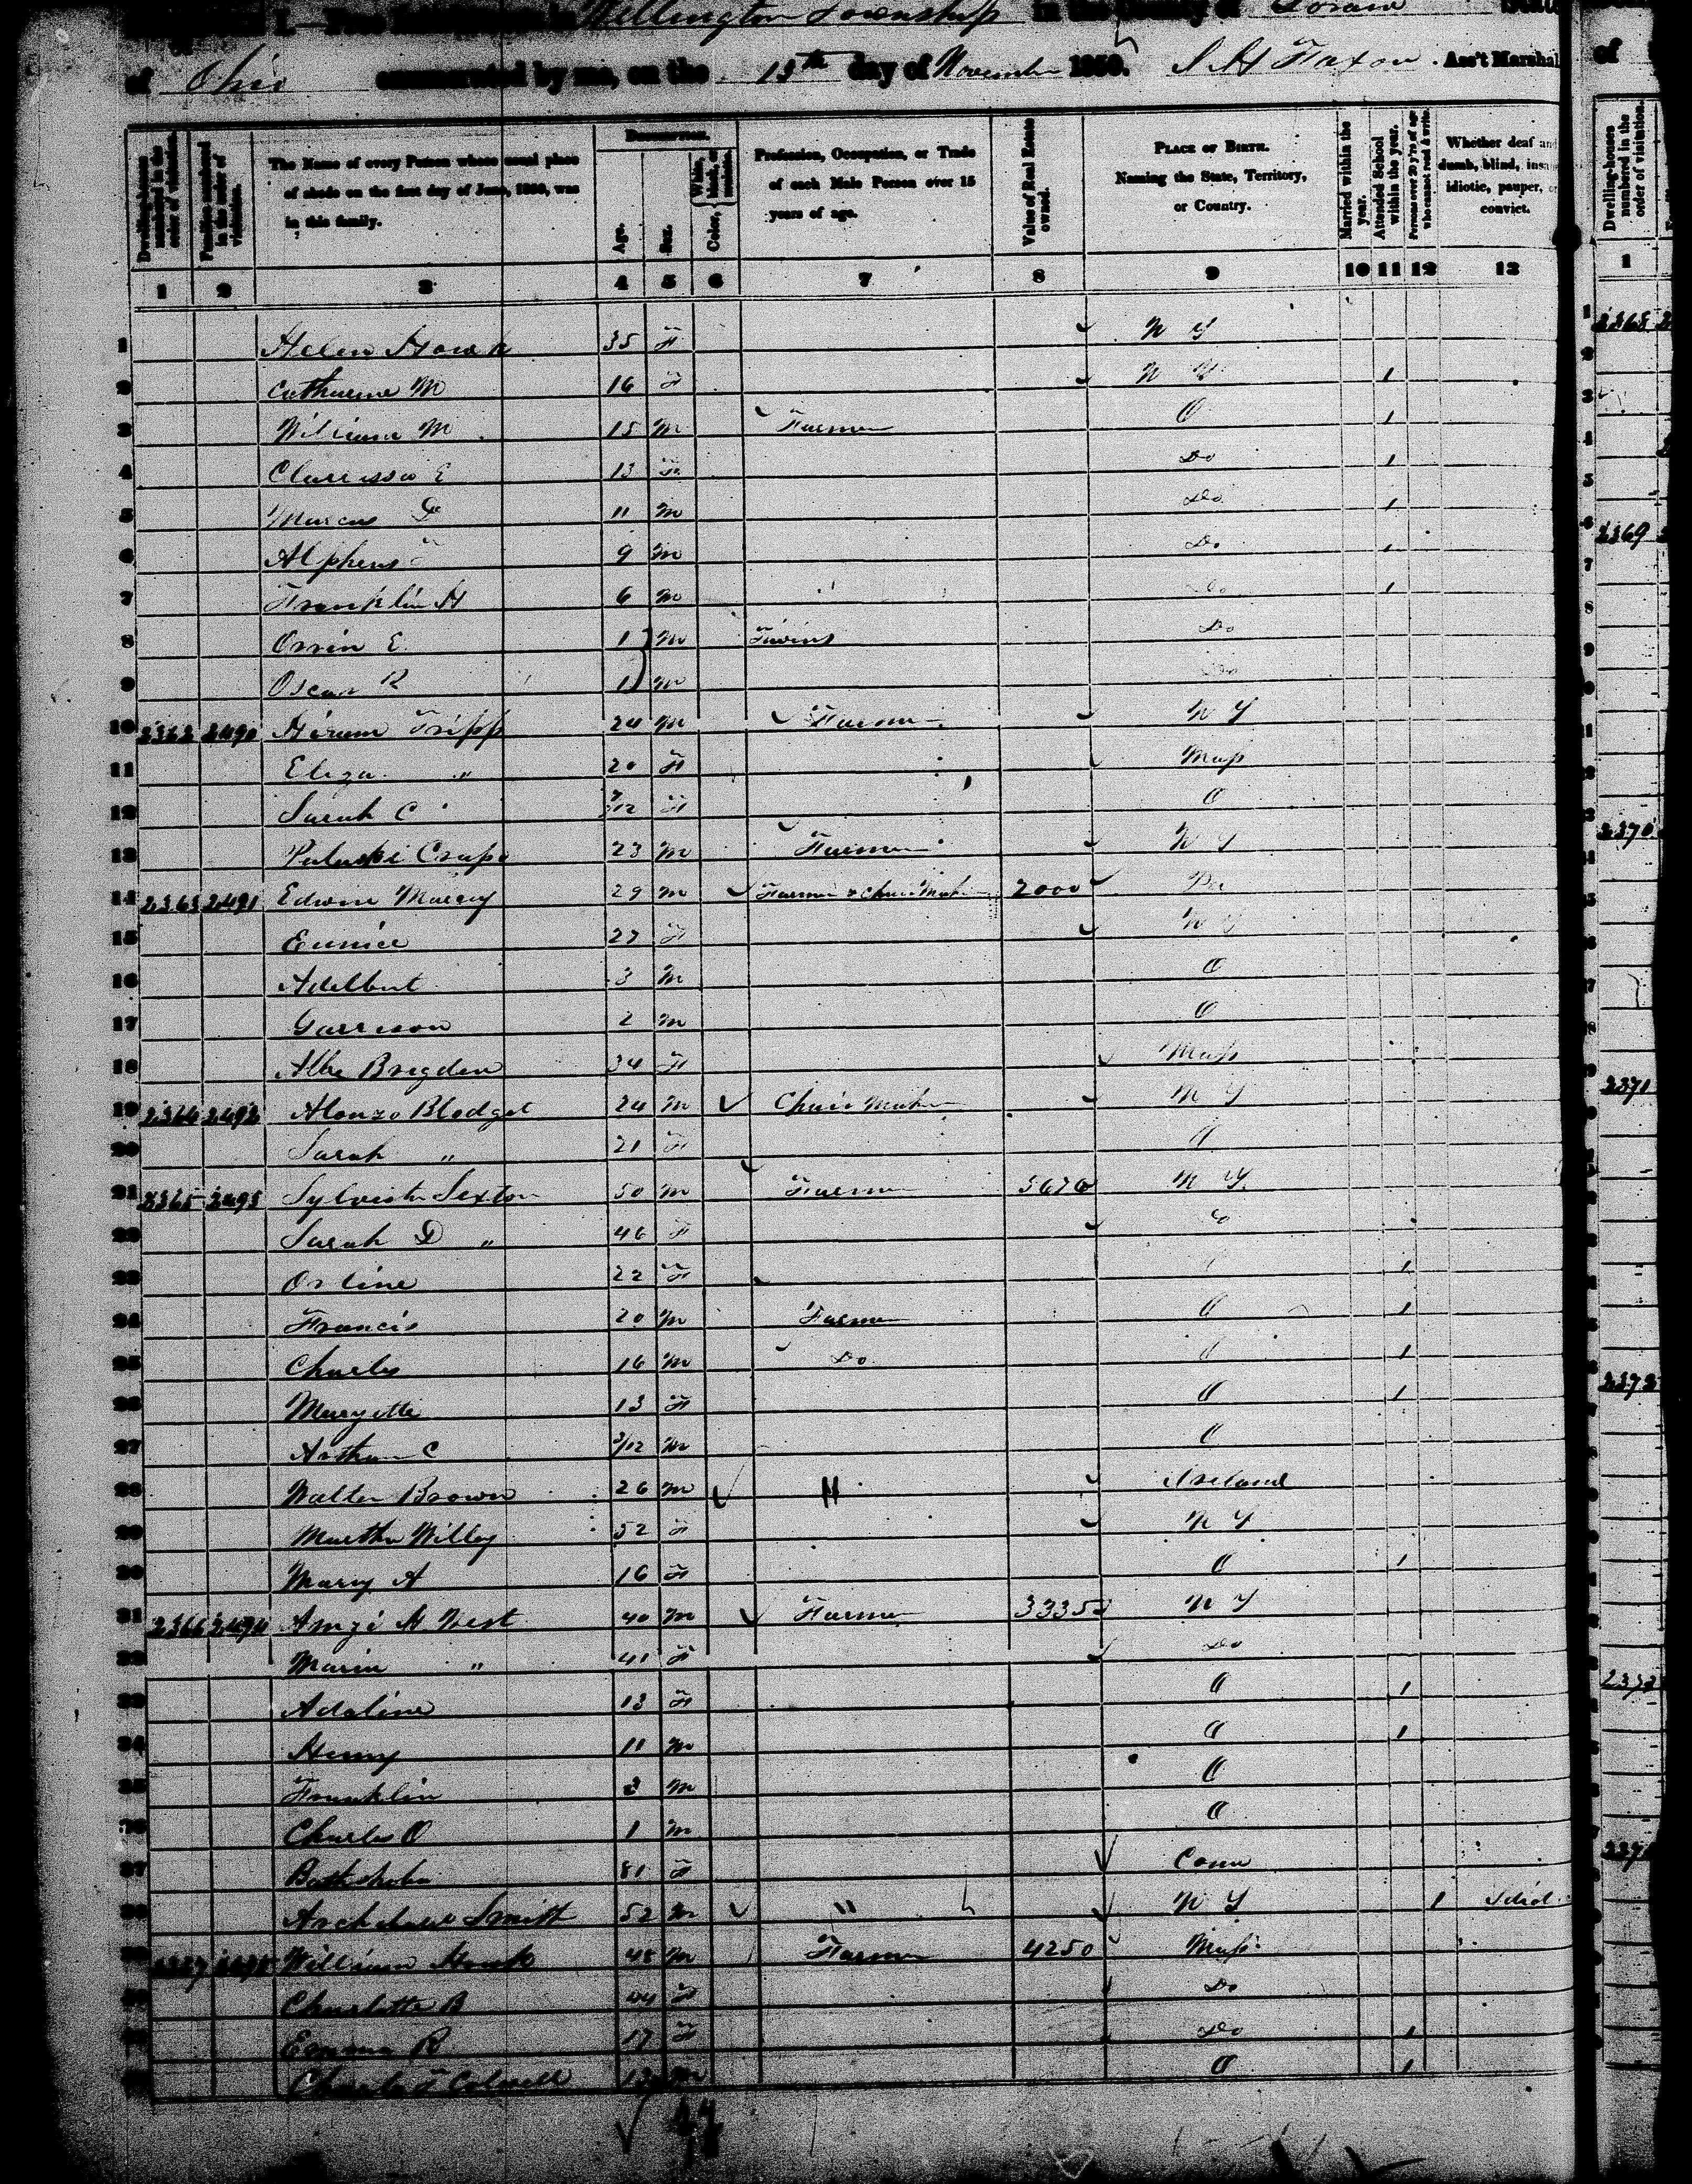 I.—Free Inhabitants in Wellington Township in the County of Lorain State
of Ohio enumerated by me, on the 15th day of November 1850. S H Faxon Ass't Marshal
of
Dwelling-houses numbered in the order of visitation.
Families numbered in the order of visitation.
The Name of every Person whose usual place of abode on the first day of June, 1850, was in this family.
Description.
Age.
Sex.
Color, White, black, or mulatto.
Profession, Occupation, or Trade of each Male Person over 15 years of age.
Value of Real Estate owned.
Place of Birth. Naming the State, Territory, or Country.
Married within the year.
Attended School within the year.
Persons over 20 y'rs of age who cannot read & write.
Whether deaf and dumb, blind, insane, idiotic, pauper, or convict.
Dwelling-houses numbered in the order of visitation.
1 2 3 4 5 6 7 8 9 10 11 12 13 1
1 Helen Houk 35 F N Y
2 Catharine M 16 F N Y 1
3 William M 15 M Farmer O 1
4 Clarrissa E 13 F Do 1
5 Marcus D 11 M Do 1
6 Alpheus 9 M Do 1
7 Franklin H 6 M Do 1
8 Orrin E 1 M Twins Do
9 Oscar R 1 M Do
10 2362 2490 Hiram Tripp 24 M Farmer N Y
11 Eliza " 20 F Mass
12 Sarah C /12 F O
13 Pulaski Crapo 23 M Farmer N Y
14 2363 2491 Edwin Murray 29 M Farmer & Chair Maker 2000 Pa
15 Eunice 27 F N Y
16 Adelbert 3 M O
17 Garrison 2 M O
18 Brigden 34 F Mass
19 2364 2492 Alonzo Blodget 24 M Chair Maker N Y
20 Sarah " 21 F O
21 2365 2493 Sylvester Sexton 50 M Farmer 5676 N Y
22 Sarah D " 46 F
23 Orline 22 F 1
24 Francis 20 M Farmer O 1
25 Charles 16 M Do O 1
26 Maryette 13 F O 1
27 Arthur C 3/12 M O
28 Walter Brown 26 M " Ireland
29 Martha Willey 52 F N Y
30 Mary A 16 F O 1
31 2366 2494 Amzi H West 40 M Farmer 3335 N Y
32 Maria " 41 F Do
33 Adaline 13 F O 1
34 Henry 11 M O 1
35 Franklin 3 M O
36 Charles O 1 M O
37 Bathsheba 81 F Conn
38 Archibald Smith 52 M " N Y 1 Idiot
39 2367 2495 William Houk 48 M Farmer 4250 Mass
Charlotte B 44 F Do
Emma R 17 F Do 1
Charles F Colwell 13 M O 1
2368
2369
2370
2371
2372
2373